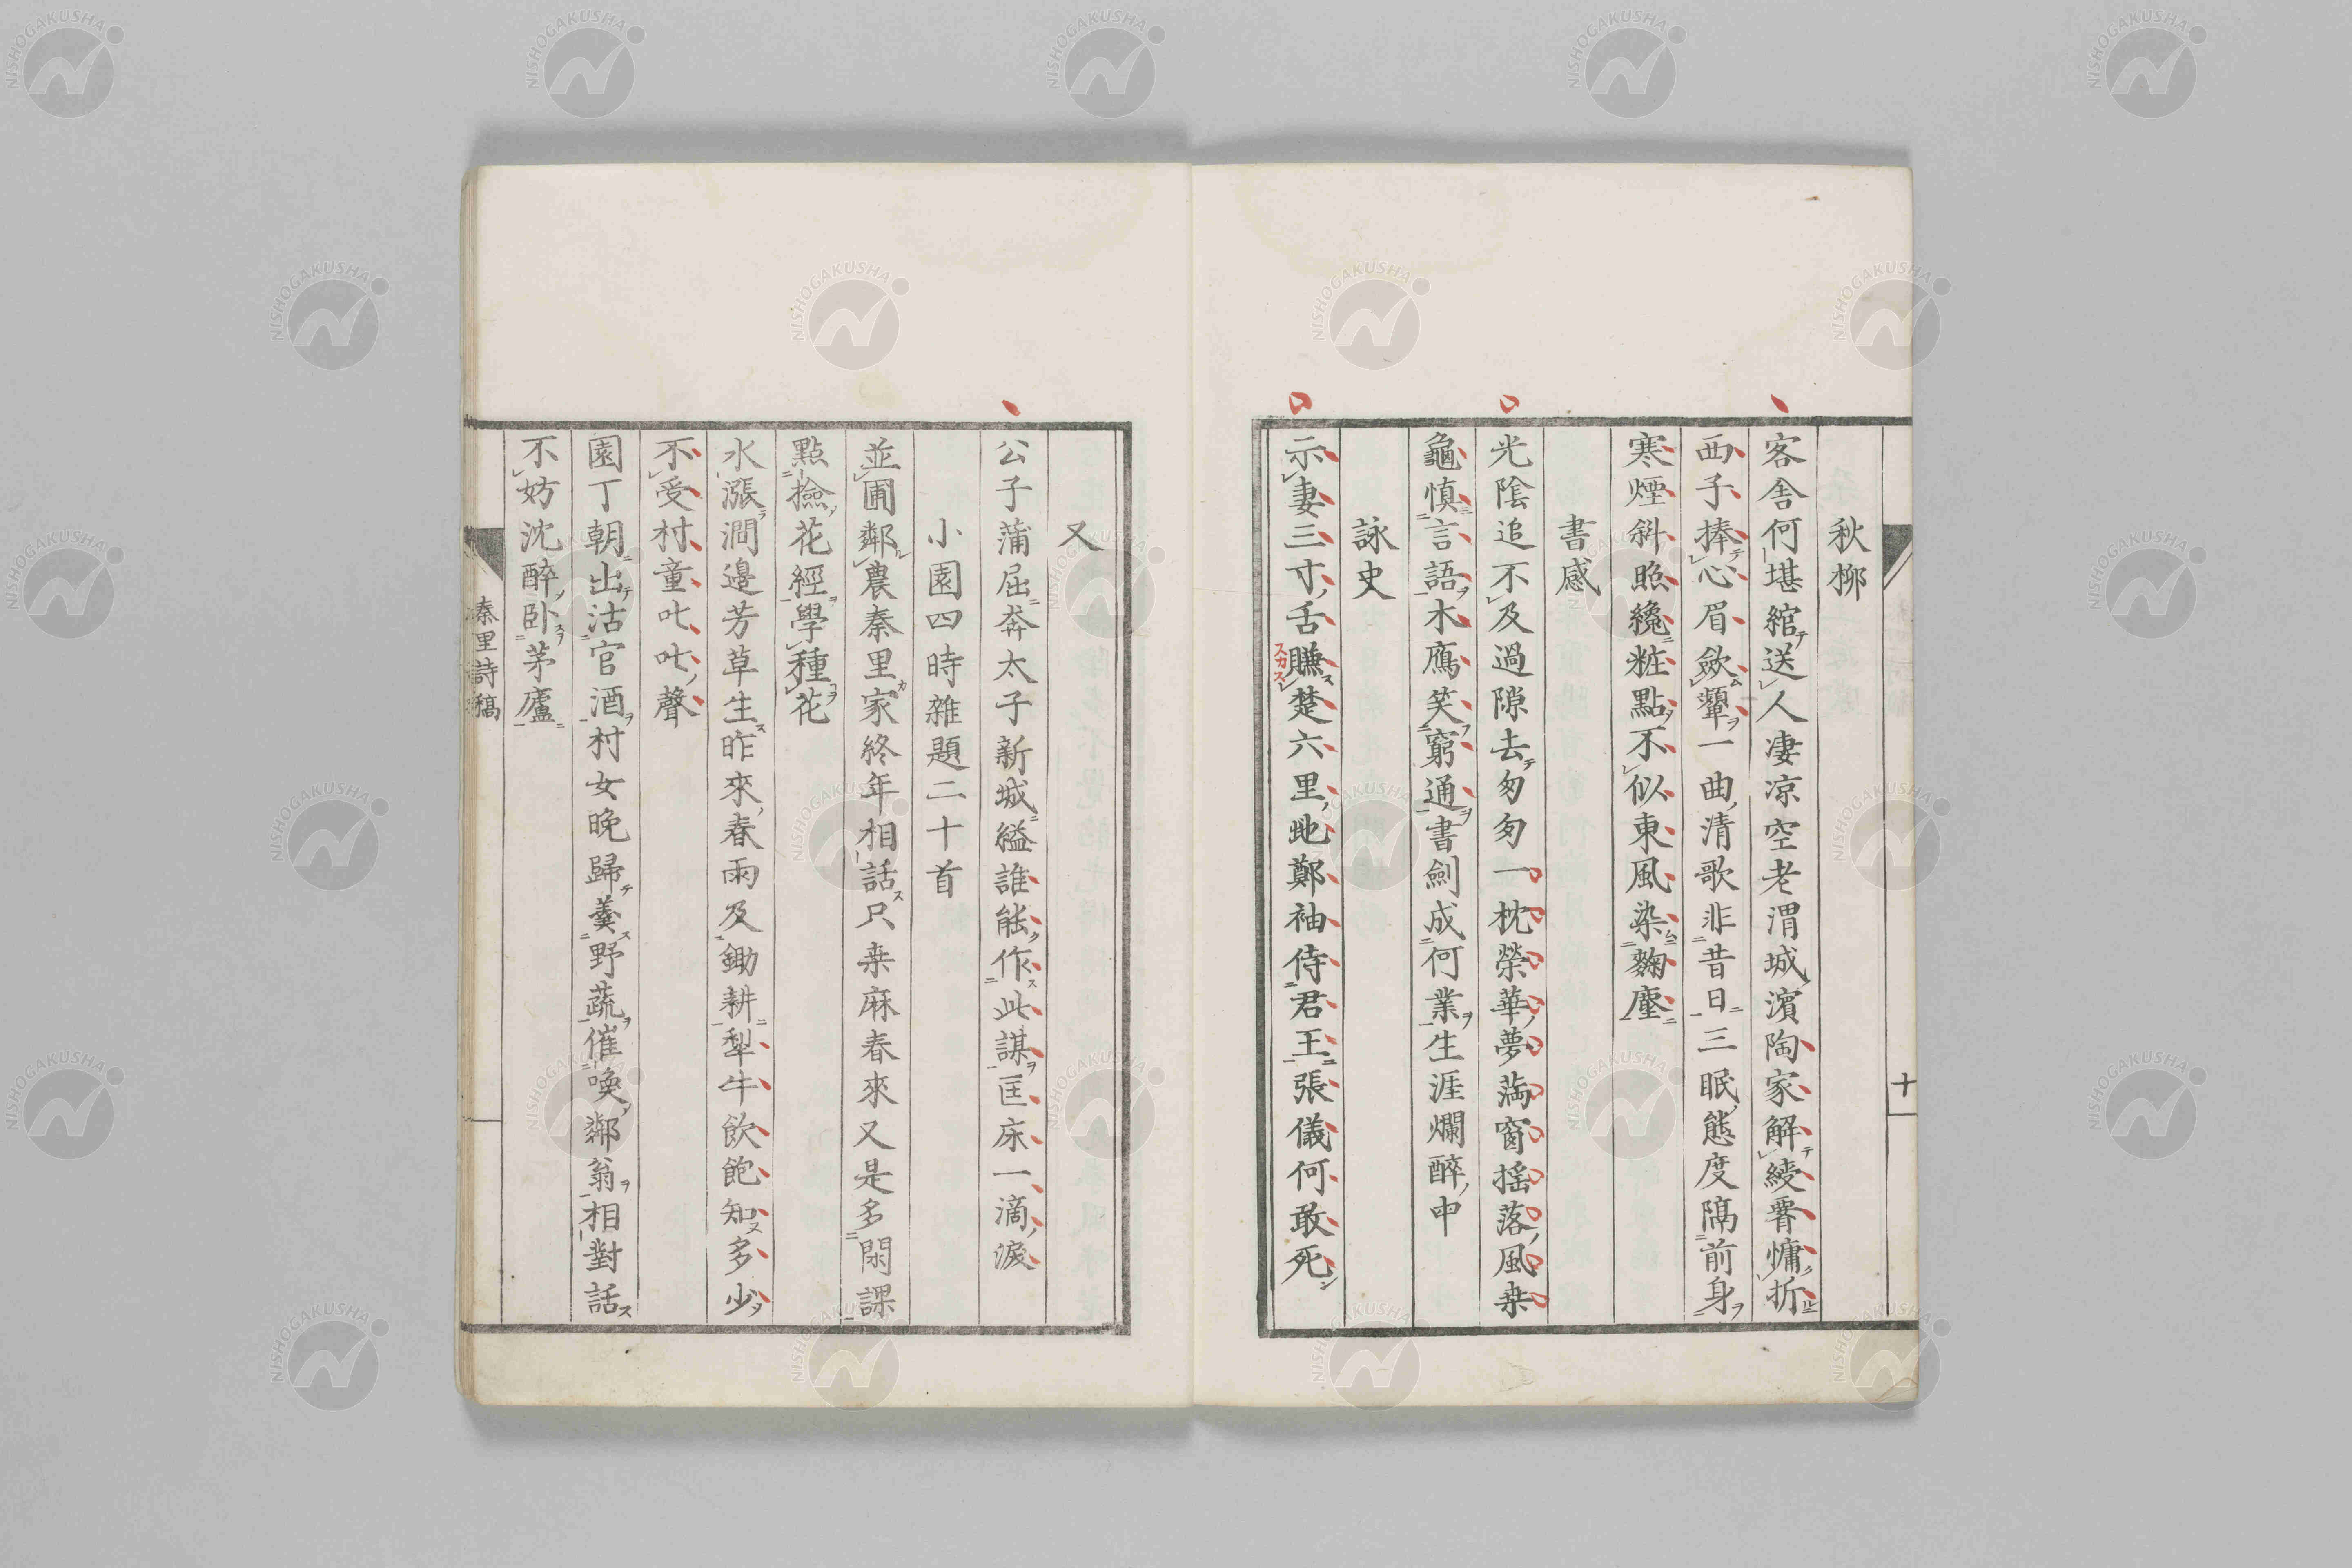 秋柳
客舎何堪綰送人凄凉空老渭城濱陶家解綬霄慵折
西子捧心眉斂顰一曲清歌非昔日三眠態度隔前身
寒煙斜照纔粧點不似東風染麴塵
書感
光陰追不及過隙去匆匆一枕榮華夢満窗揺落風桒
龜慎言語木鴈笑窮通書劍成何業生涯爛醉中
詠史
示妻三寸舌賺楚六里地鄭袖侍君王張儀何敢死
スカス
十
又
公子蒲屈奔太子新城縊誰能作此謀匡床一滴涙
小園四時雜題二十首
並圃鄰農秦里家終年相話只桒麻春來又是多閑課
點撿花經學種花
水漲澗邊芳草生昨來春雨及鋤耕犁牛飲飽知多少
不受村童叱叱聲
園丁朝出沽官酒村女晩歸羹野蔬催喚鄰翁相對話
不妨沈醉卧茅廬
秦里詩稿